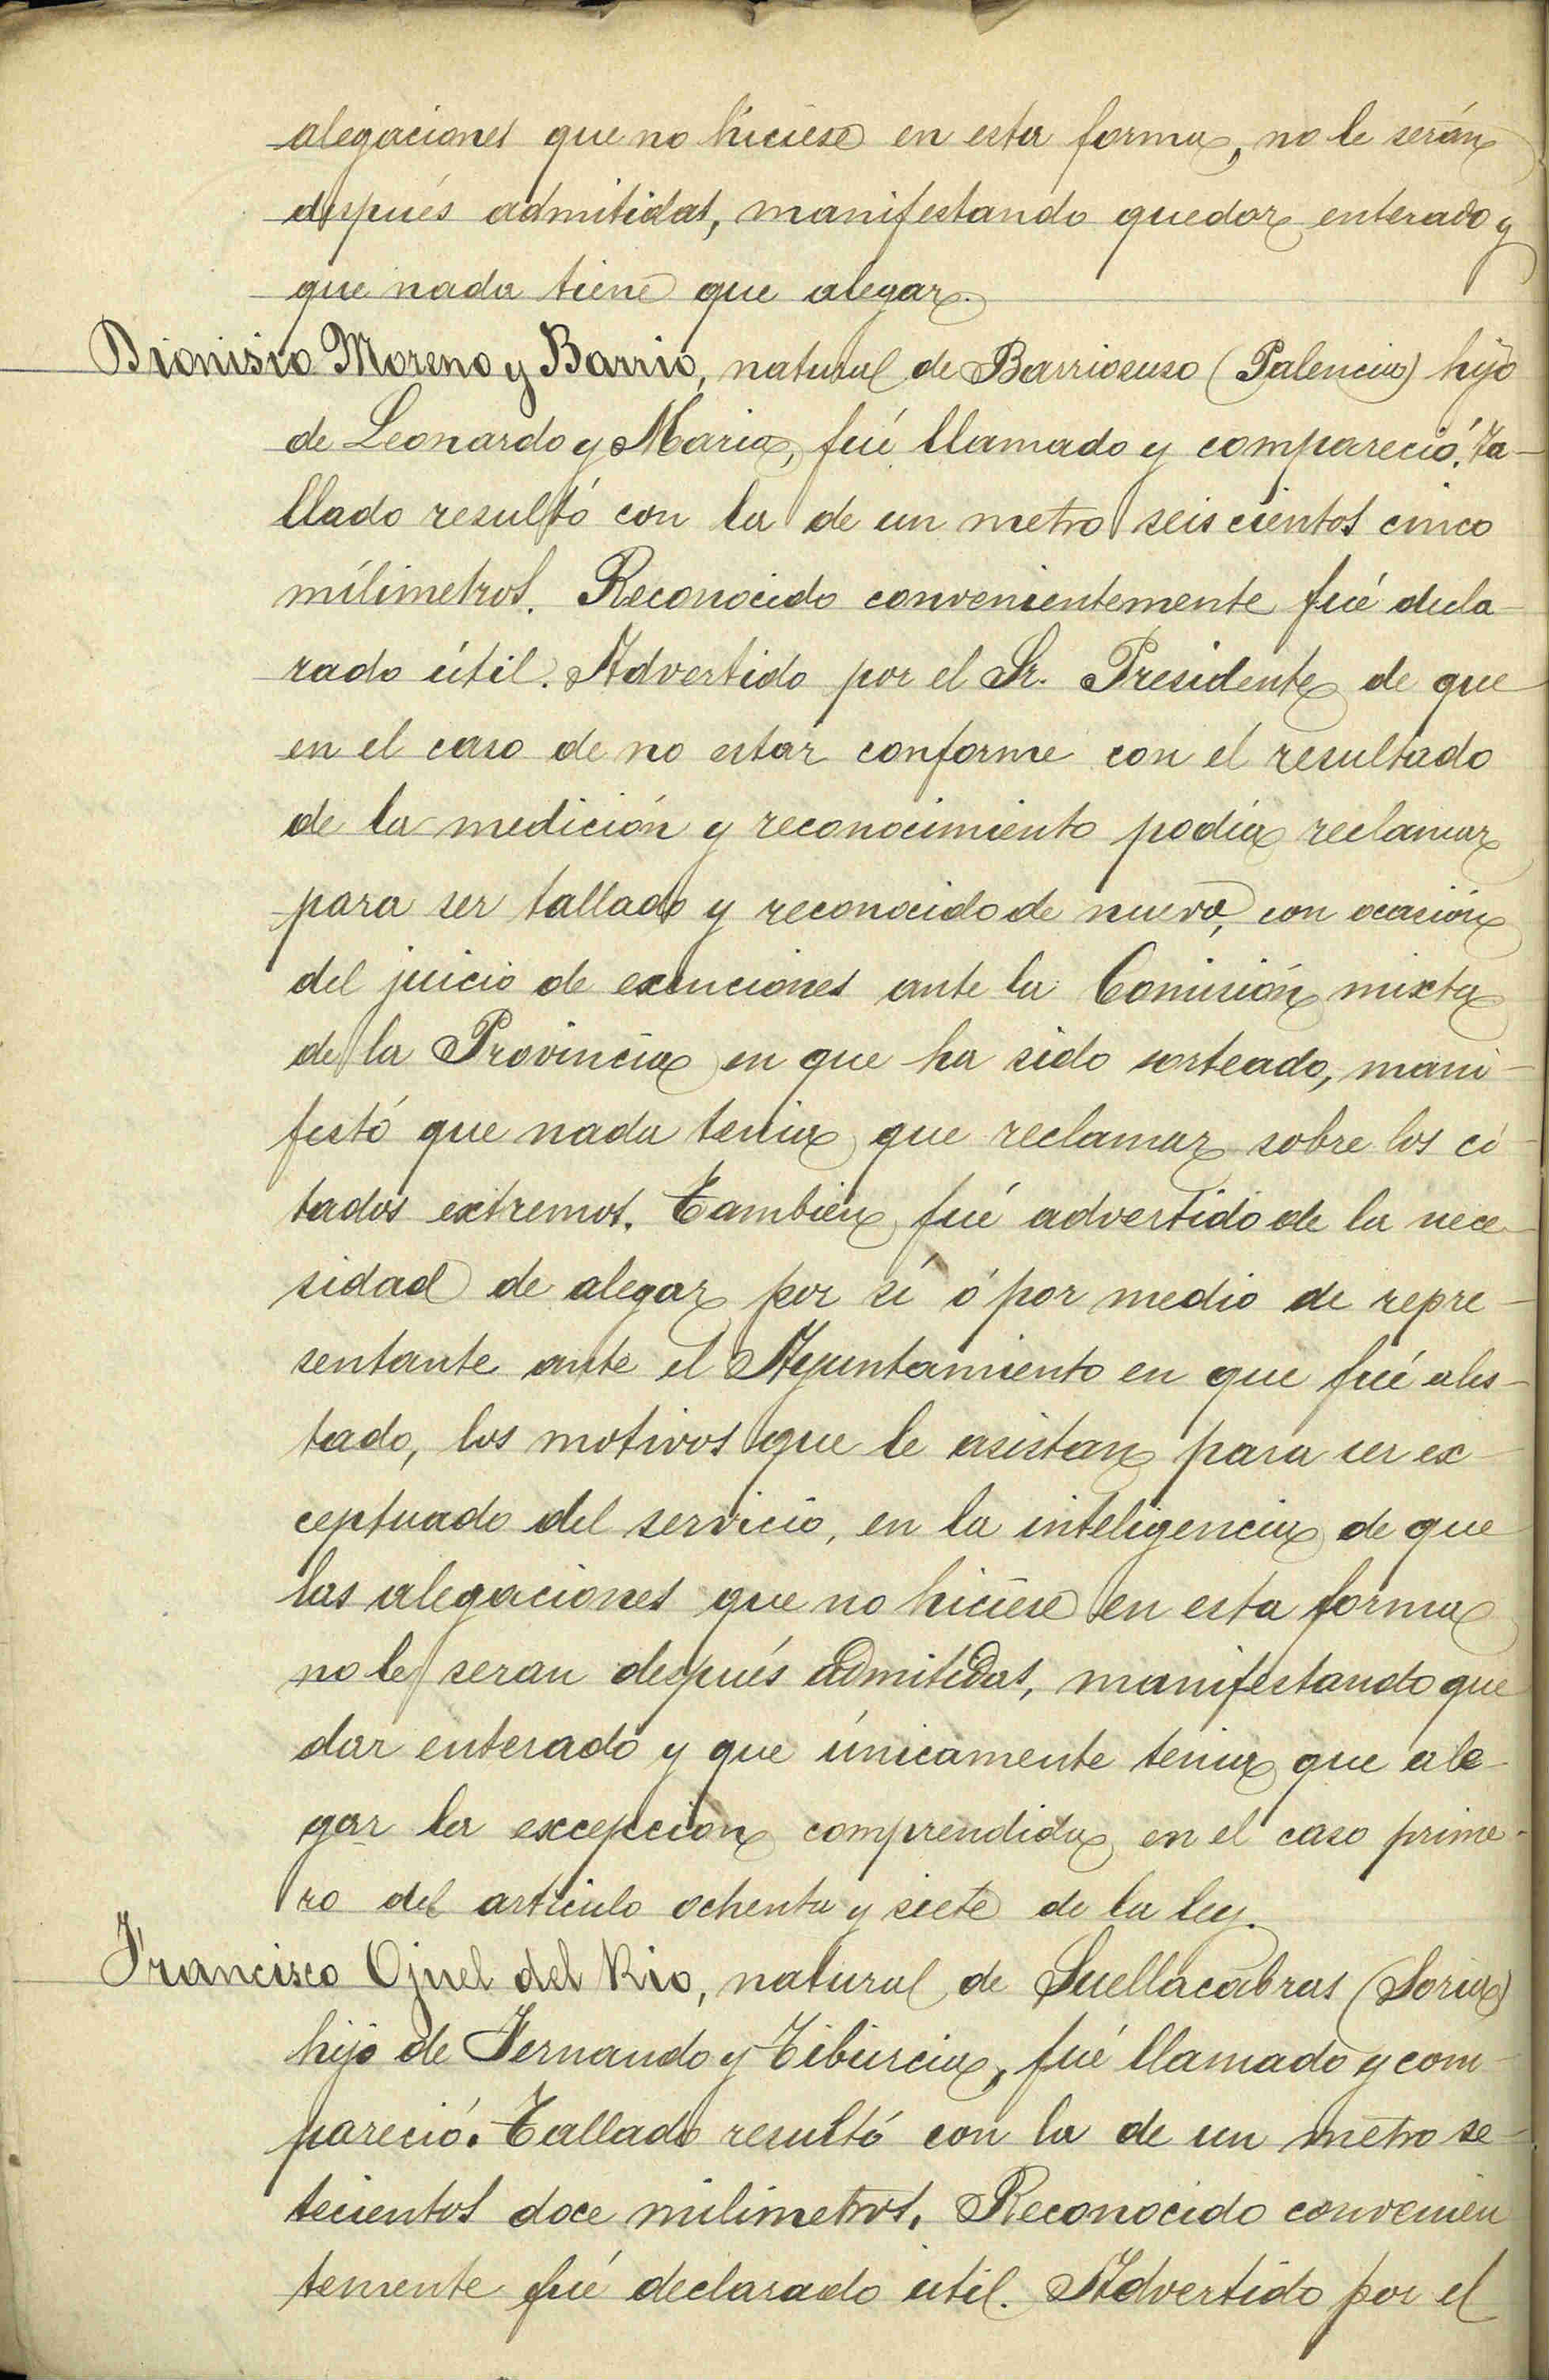 alegaciones que no hiciese en esta forma, no le serán
después admitidas, manifestando quedar enterado y
que nada tiene que alegar.
Dionisio Moreno y Barrio, natural de Barriosuso (Palencia) hijo
de Leonardo y Maria, fué llamado y compareció. Ta-
llado resultó con la de un metro seiscientos cinco
milimetros. Reconocido convenientemente fué decla-
rado útil. Advertido por el Sr. Presidente de que
en el caso de no estar conforme con el resultado
de la medición y reconocimiento podía reclamar
para ser tallado y reconocido de nuevo, con ocasión
del juicio de exenciones ante la Comisión mixta
de la Provincia en que ha sido sorteado, mani-
festó que nada tenia que reclamar sobre los ci-
tados extremos. Tambien fué advertido de la nece-
sidad de alegar por sí ó por medio de repre-
sentante ante el Ayuntamiento en que fué alis-
tado, los motivos que le asistan para ser ex-
ceptuado del servicio, en la inteligencia de que
las alegaciones que no hiciese en esta forma
no le seran después admitidas, manifestando que
dar enterado y que únicamente tenia que ale-
gar la excepcion comprendida en el caso prime-
ro del articulo ochenta y siete de la ley.
Francisco Ojuel del Rio, natural de Suellacabras (Soria)
hijo de Fernando y Tiburcia, fué llamado y com-
pareció. Tallado resultó con la de un metro se-
tecientos doce milimetros. Reconocido convenien
temente fué declarado útil. Advertido por el